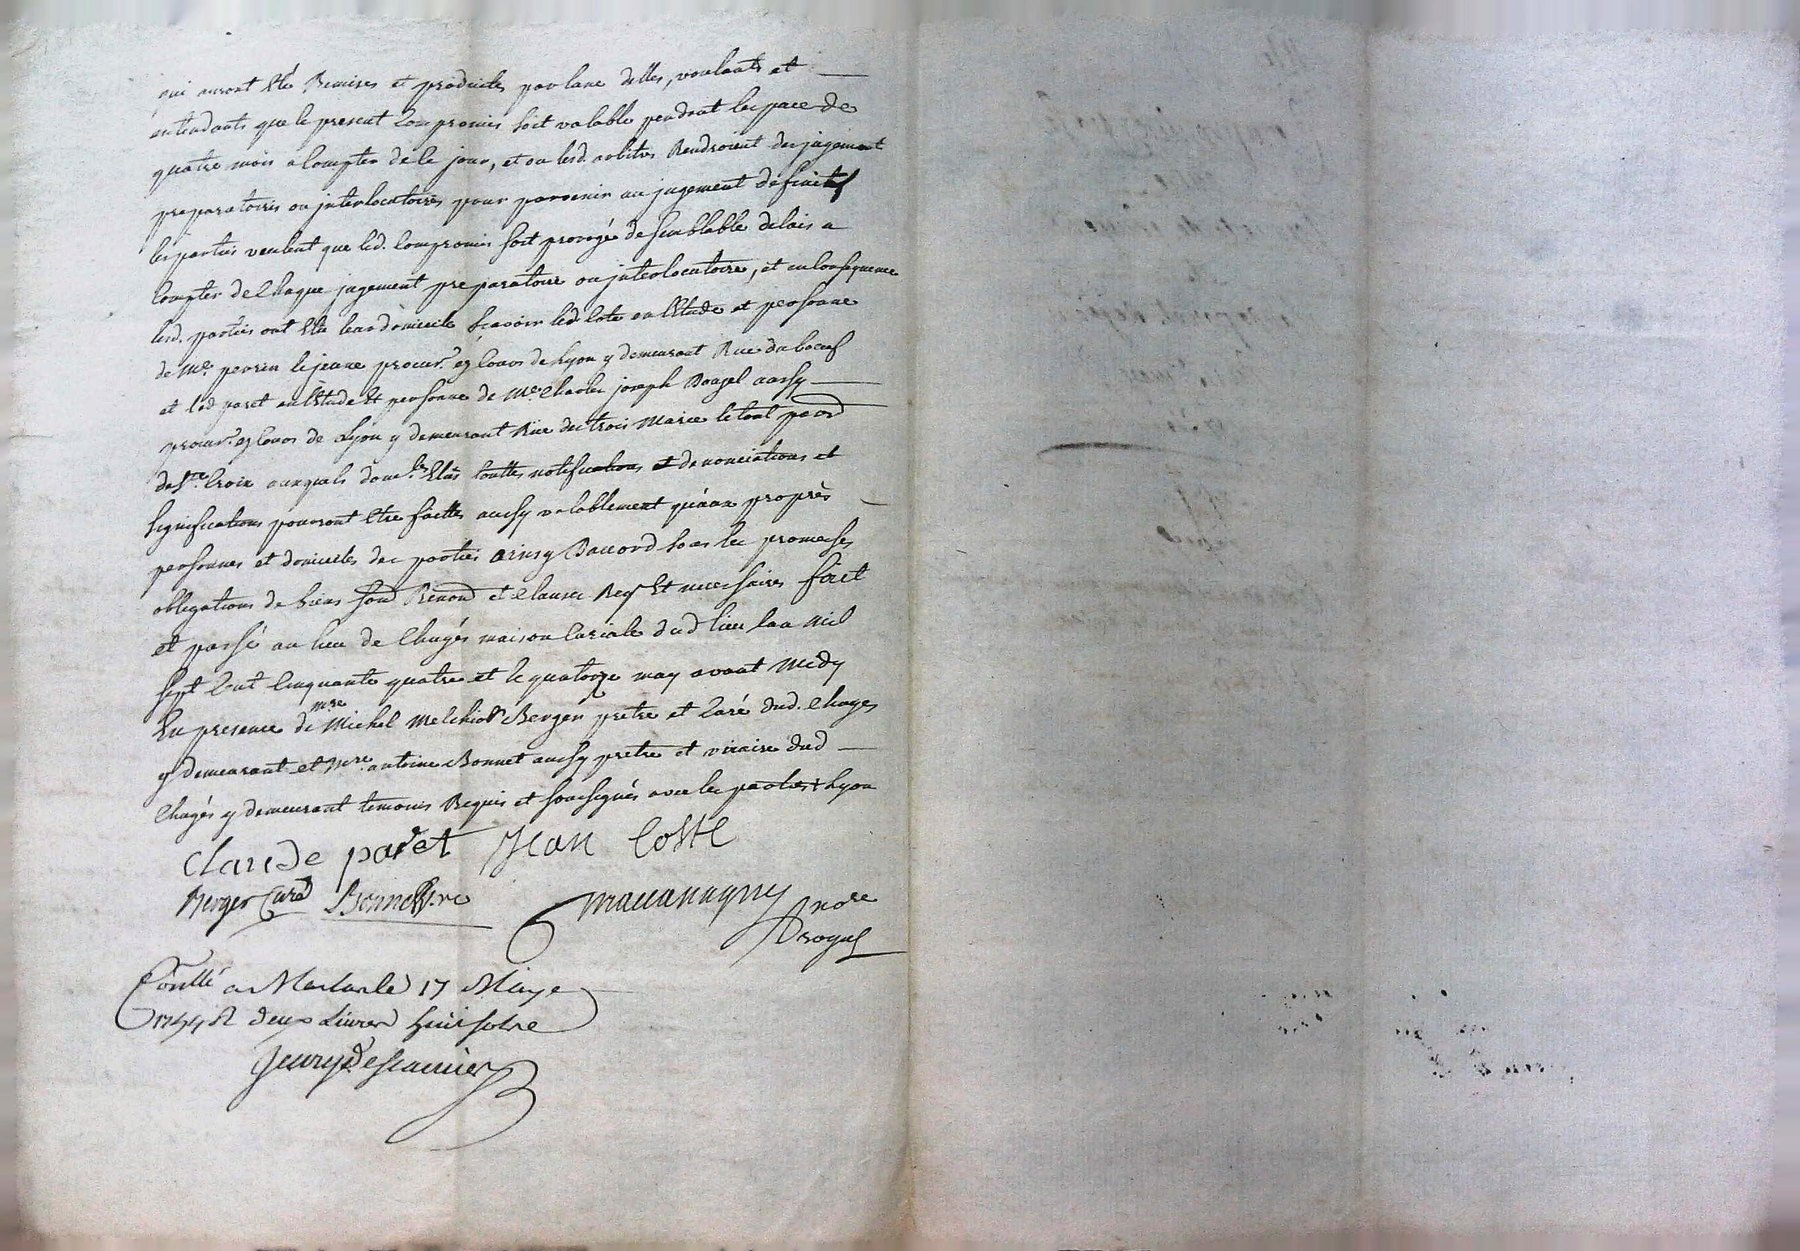 qui auront eté Remises et produites par lune delles, voulants et
entendants que le present Compromis soit valable pendant lespace de
quatre mois a Compter de ce jour, et ou lesd. arbitres Rendroient des jugement
preparatoires ou jnterlocutoires pour parvenir au jugement definitif
les parties veulent que led. Compromis soit prorogé de semblable delais a
Compter de Chaque jugement preparatoire ou jnterlocutoire, et en Consequence
lesd. parties ont Elu leur domicile sçavoir led. Coste en l'Etude et personne
de Me. perrin le jeune procur. ez Cours de Lyon y demeurant Rue du boeuf
et led paret en l'Etude et personne de Me. Charles joseph aussy
procur. ez Cours de Lyon y demeurant Rüe des trois Marie le tout
de Ste. Croix auxquels domles. Elus touttes notifications et denonciations et
significations pouront etre faittes aussy valablement qu'aux propres
personnes et domiciles des parties ainsy Daccord sous les promesses
obligations de biens et Clauses Req. Et necessaires fait
et passé au lieu de Chagés maison Curiale dud lieu lan mil
sept Cent Cinquante quatre et le quatorze may avant midy
En presence de mre Michel Melchior Berger pretre et Curé dud. Chages
y demeurant et mre. antoine Bonnet aussy pretre et vicaire dud
Chagés y demeurant temoins Requis et soussignés avec les parties
Claude paret Jean Coste
Berger Curé Bonnet
nore
Royal
Conllé a le 17 Maye
1754 R deux Livres huit sols